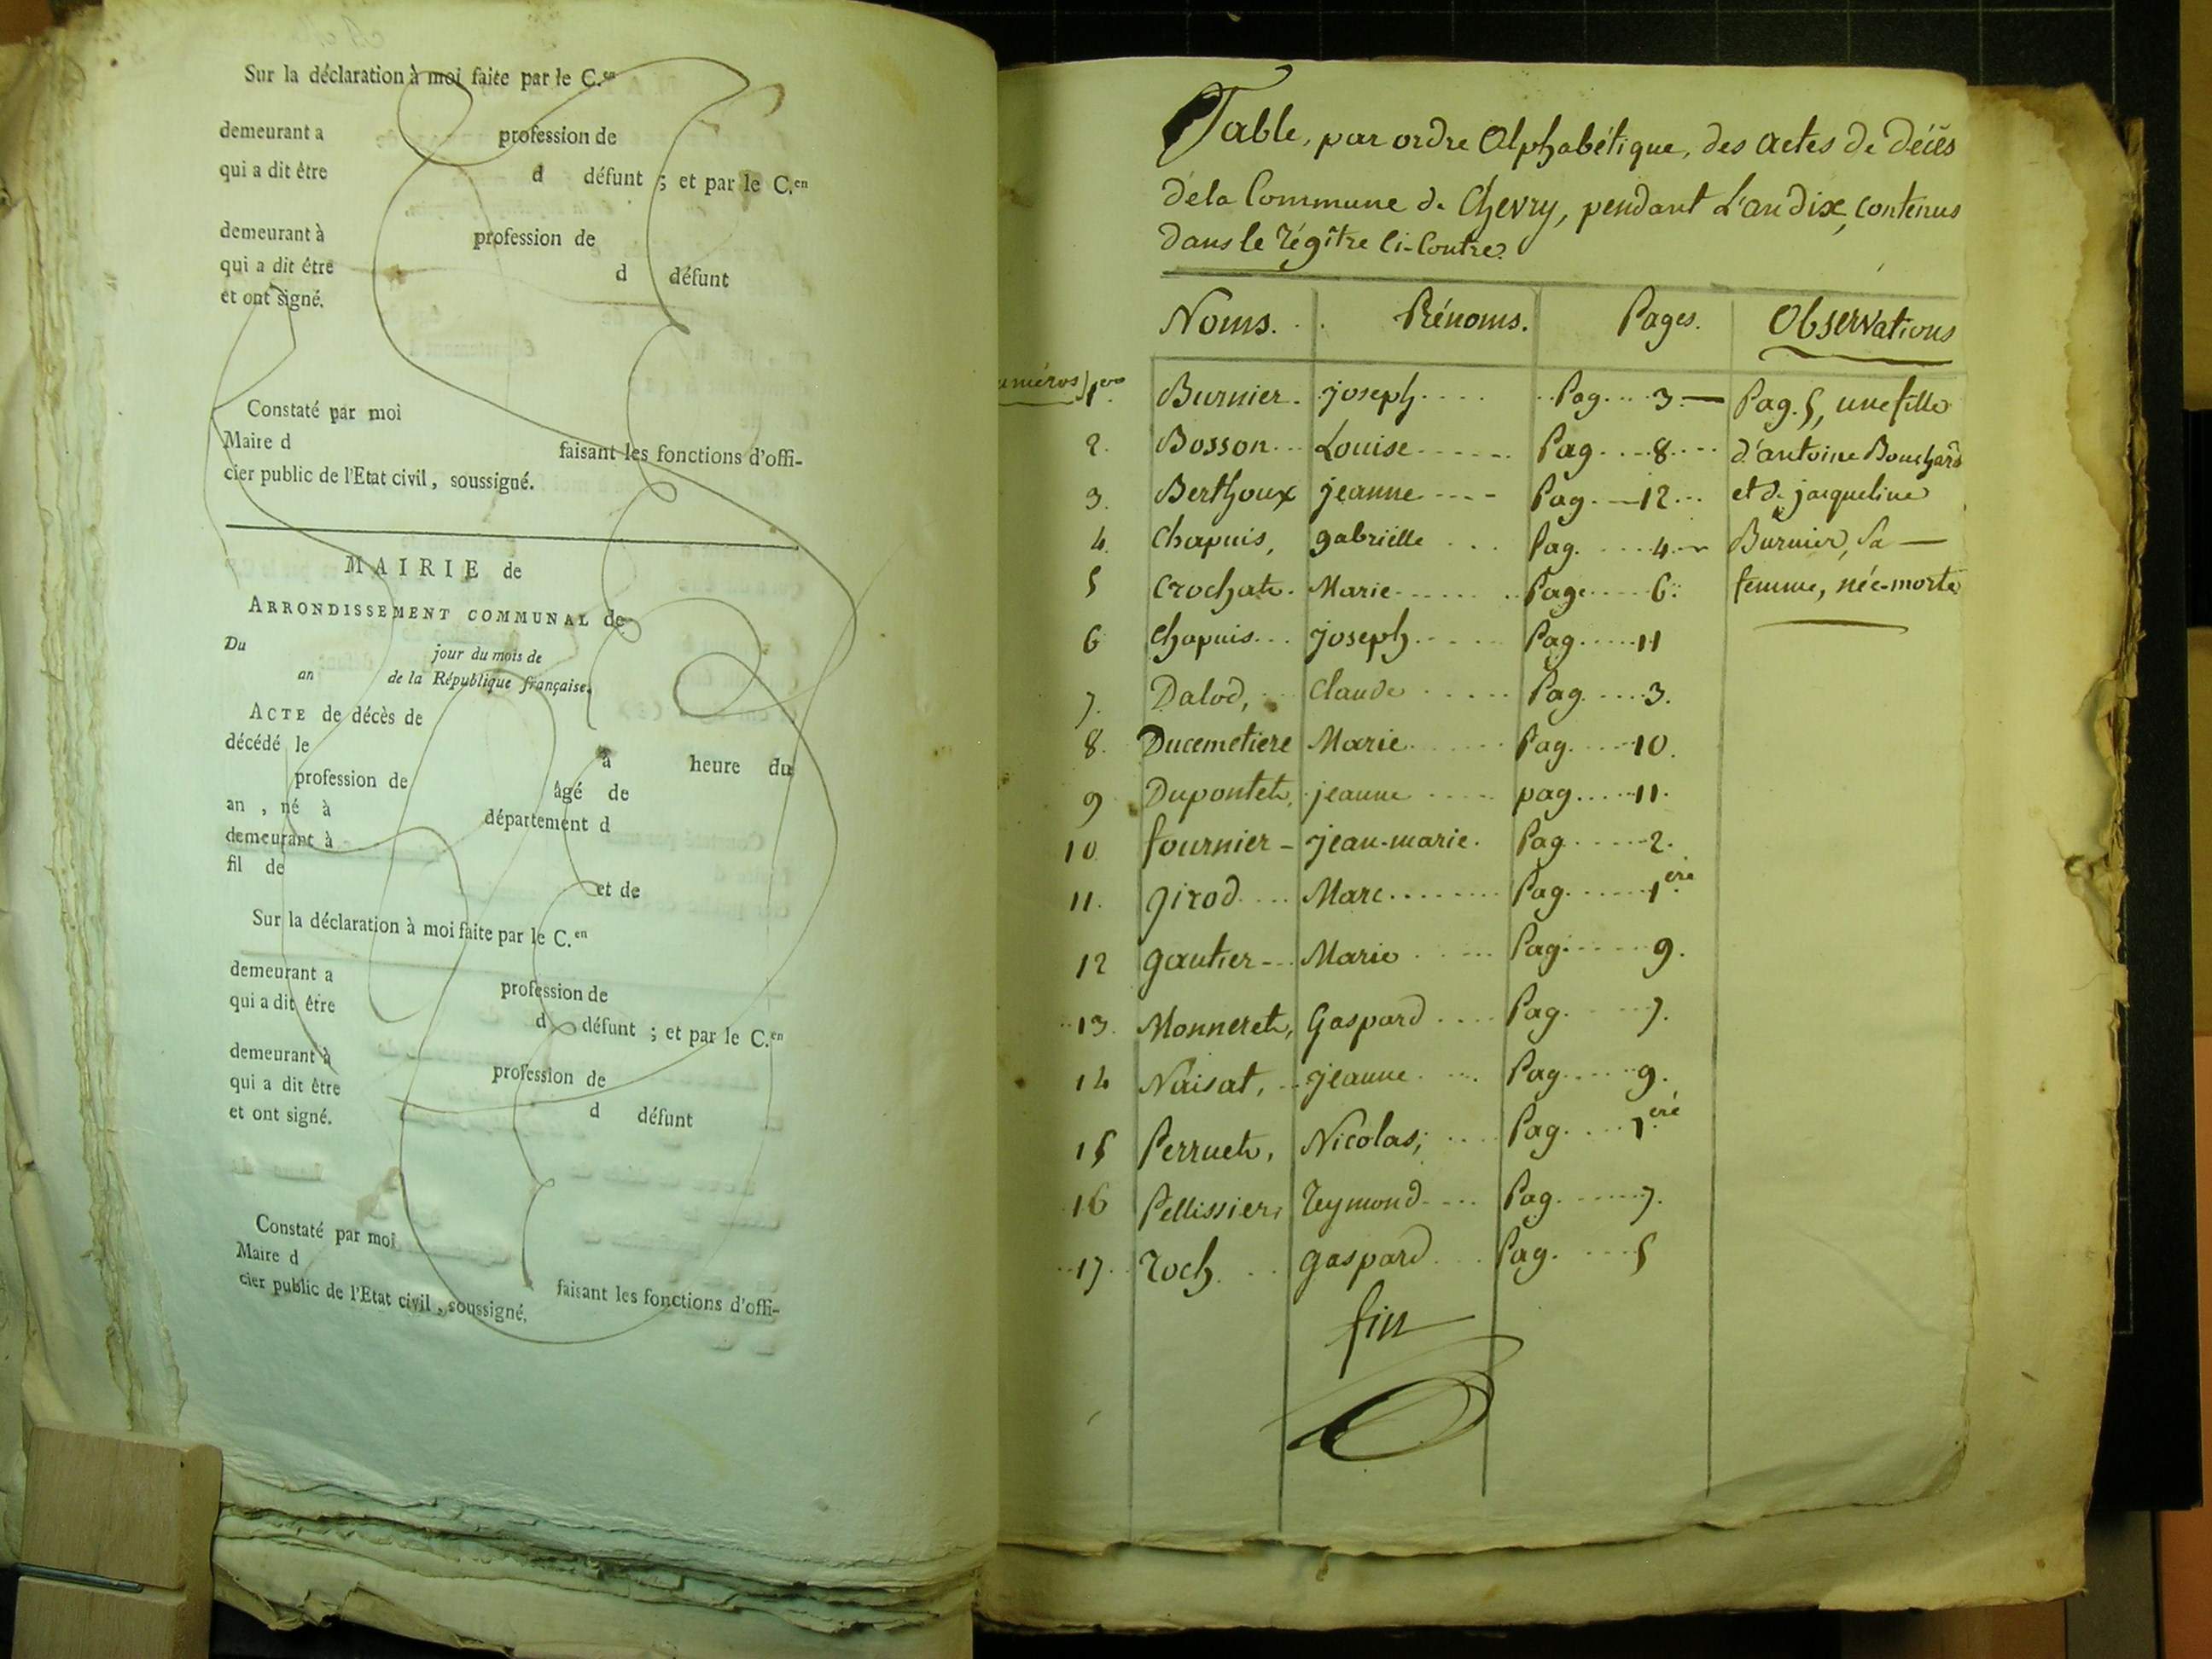 Sur la déclaration à moi faite par le C.en
demeurant a profession de
qui a dit être d défunt ; et par le C.en
demeurant à profession de
qui a dit être d défunt
et ont signé.
Constaté par moi
Maire d faisant les fonctions d'offi-
cier public de l'Etat civil, soussigné.
MAIRIE de
ARRONDISSEMENT COMMUNAL de
Du jour du mois de
an de la République française.
ACTE de décès de
décédé le à heure du
profession de âgé de
an , né à département d
demeurant à
fil de et de
Sur la déclaration à moi faite par le C.en
demeurant a profession de
qui a dit être d défunt ; et par le C.en
demeurant à profession de
qui a dit être d défunt
et ont signé.
Constaté par moi
Maire d faisant les fonctions d'offi-
cier public de l'Etat civil, soussigné.
Table, par ordre Alphabétique, des actes de décès
dela Commune de Chevry, pendant L'an dix, contenus
dans le régître Ci-Contre.
Noms. Prénoms. Pages. Observations
uméros) 1ero Burnier. joseph.... Pag....3.— Pag. 5, une fille
2. Bosson... Louise...... Pag....8.... d'antoine Bouchard
3. Berthoux jeanne ---- Pag.—12... et de jacqueline
4. Chapuis, gabriëlle ... Pag.....4.— Burnier, Sa —
5 Crochat. Marie...... Page.....6. femme, née-morte
6 Chapuis... joseph...... Pag.....11
7. Dalod, Claude ...... Pag.....3.
8. Ducemetiere Marie...... Pag.....10.
9 Dupontet, jeanne ..... pag.....11.
10 fournier - jean-marie. Pag.....2.
11. Girod.... Marc....... Pag......1ere
12 Gautier... Marie ..... Pag......9.
13. Monneret, Gaspard .... Pag.....7.
14 Naisat, jeanne .... Pag.....9.
15 Perruet, Nicolas; .... Pag....1ere
16 Pellissier, reymond.... Pag......7.
17. roch... gaspard... Pag.....5
fin